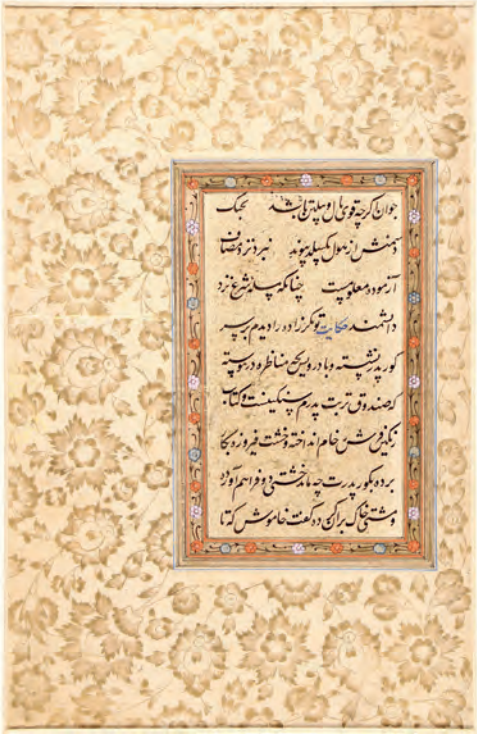 جوان اگرچه قوی یال و پیلتن باشد بجنگ
دشمنش از هول بگسلد پیوند نبرد نزد مصاف
آزموده معلومست چنانکه مسئله شرع نزد
دانشمند حکایت توانگرزاده را دیدم بر سر
گور پدر نشسته و با درویش بچه مناظره در پیوسته
که صندوق تربت پدرم سنگینست و کتابه
رنگین و فرش رخام انداخته و خشت فیروزه بکار
برده بگور پدرت چه ماند خشتی دو فراهم آورده
و مشتی خاک بران کرده گفت خاموش که تا